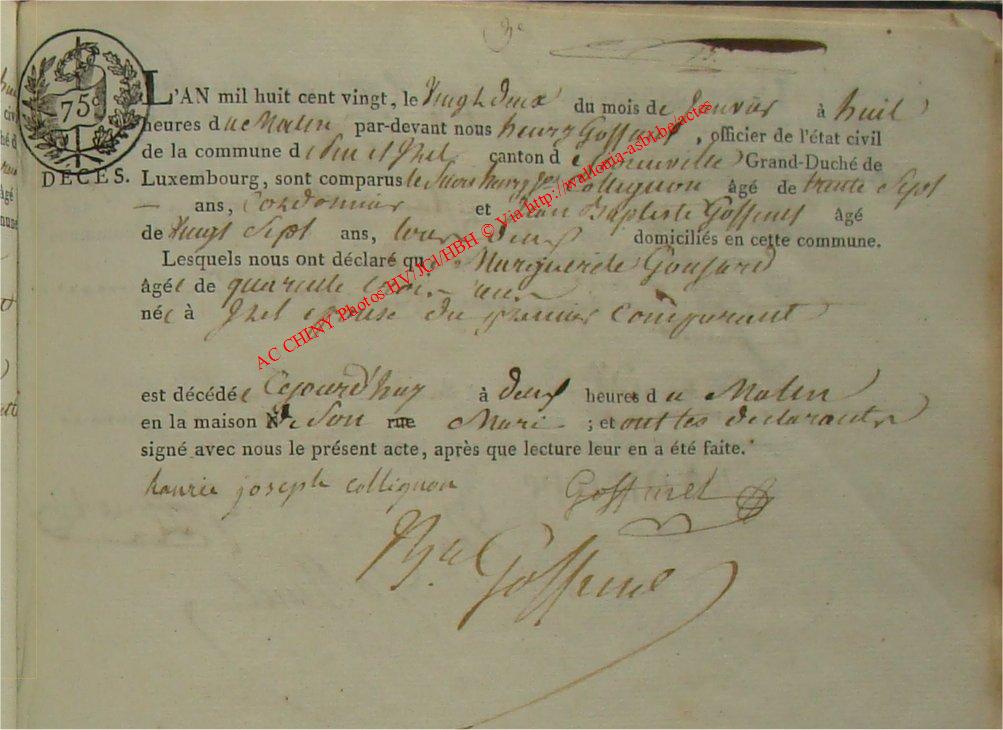 3e
75c
DÉCÈS.
L'AN mil huit cent vingt, le vingt deux du mois de Janvier à huit
heures du Matin par-devant nous henry Goffinet, officier de l'état civil
de la commune d canton d Grand-Duché de
Luxembourg, sont comparus le Sieurs henry Jos Collignon âgé de trente Sept
— ans, Cordonnier et Jean Baptiste Goffinet âgé
de Vingt Sept ans, tous deux domiciliés en cette commune.
Lesquels nous ont déclaré que Marguerite
âgée de quarante ans
née à Izel épouse du premier Comparant
est décédée Cejourd'huy à deux heures du Matin
en la maison de Son rue Mari ; et ont les declarants
signé avec nous le présent acte, après que lecture leur en a été faite.
henrie joseph collignon Goffinet
Goffinet
AC CHINY Photos HV/JCl/HBH © Via http://wallonia-asbl.be/actes